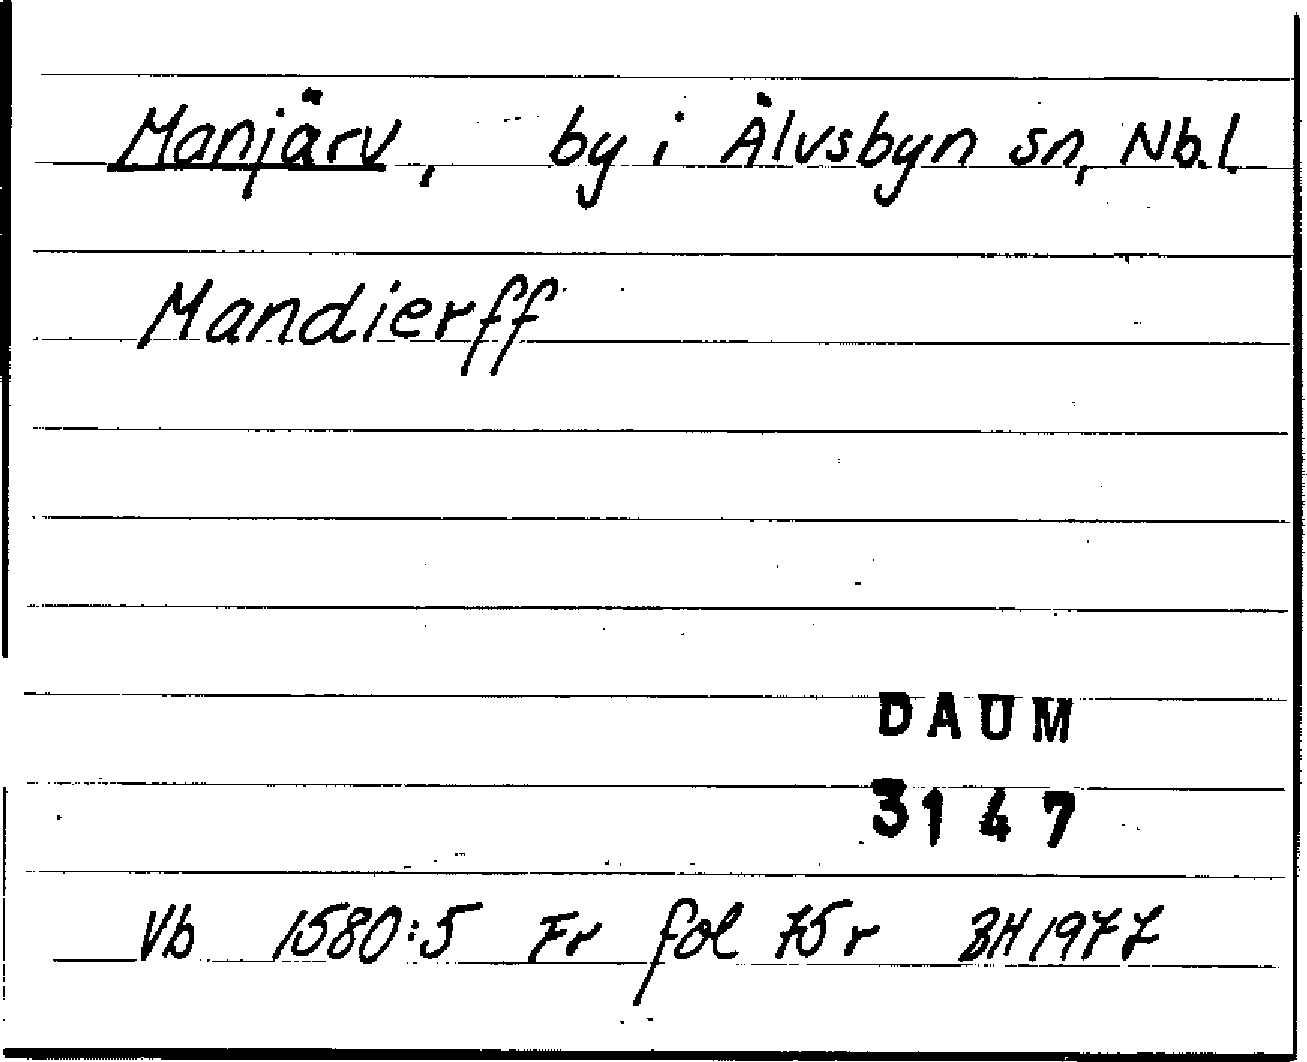 Manjärv, by i Älvsbyn sn, Nb.l.
Mandierff
DAUM
3147
Vb 1580:5 Fr fol 75 r BH 1977